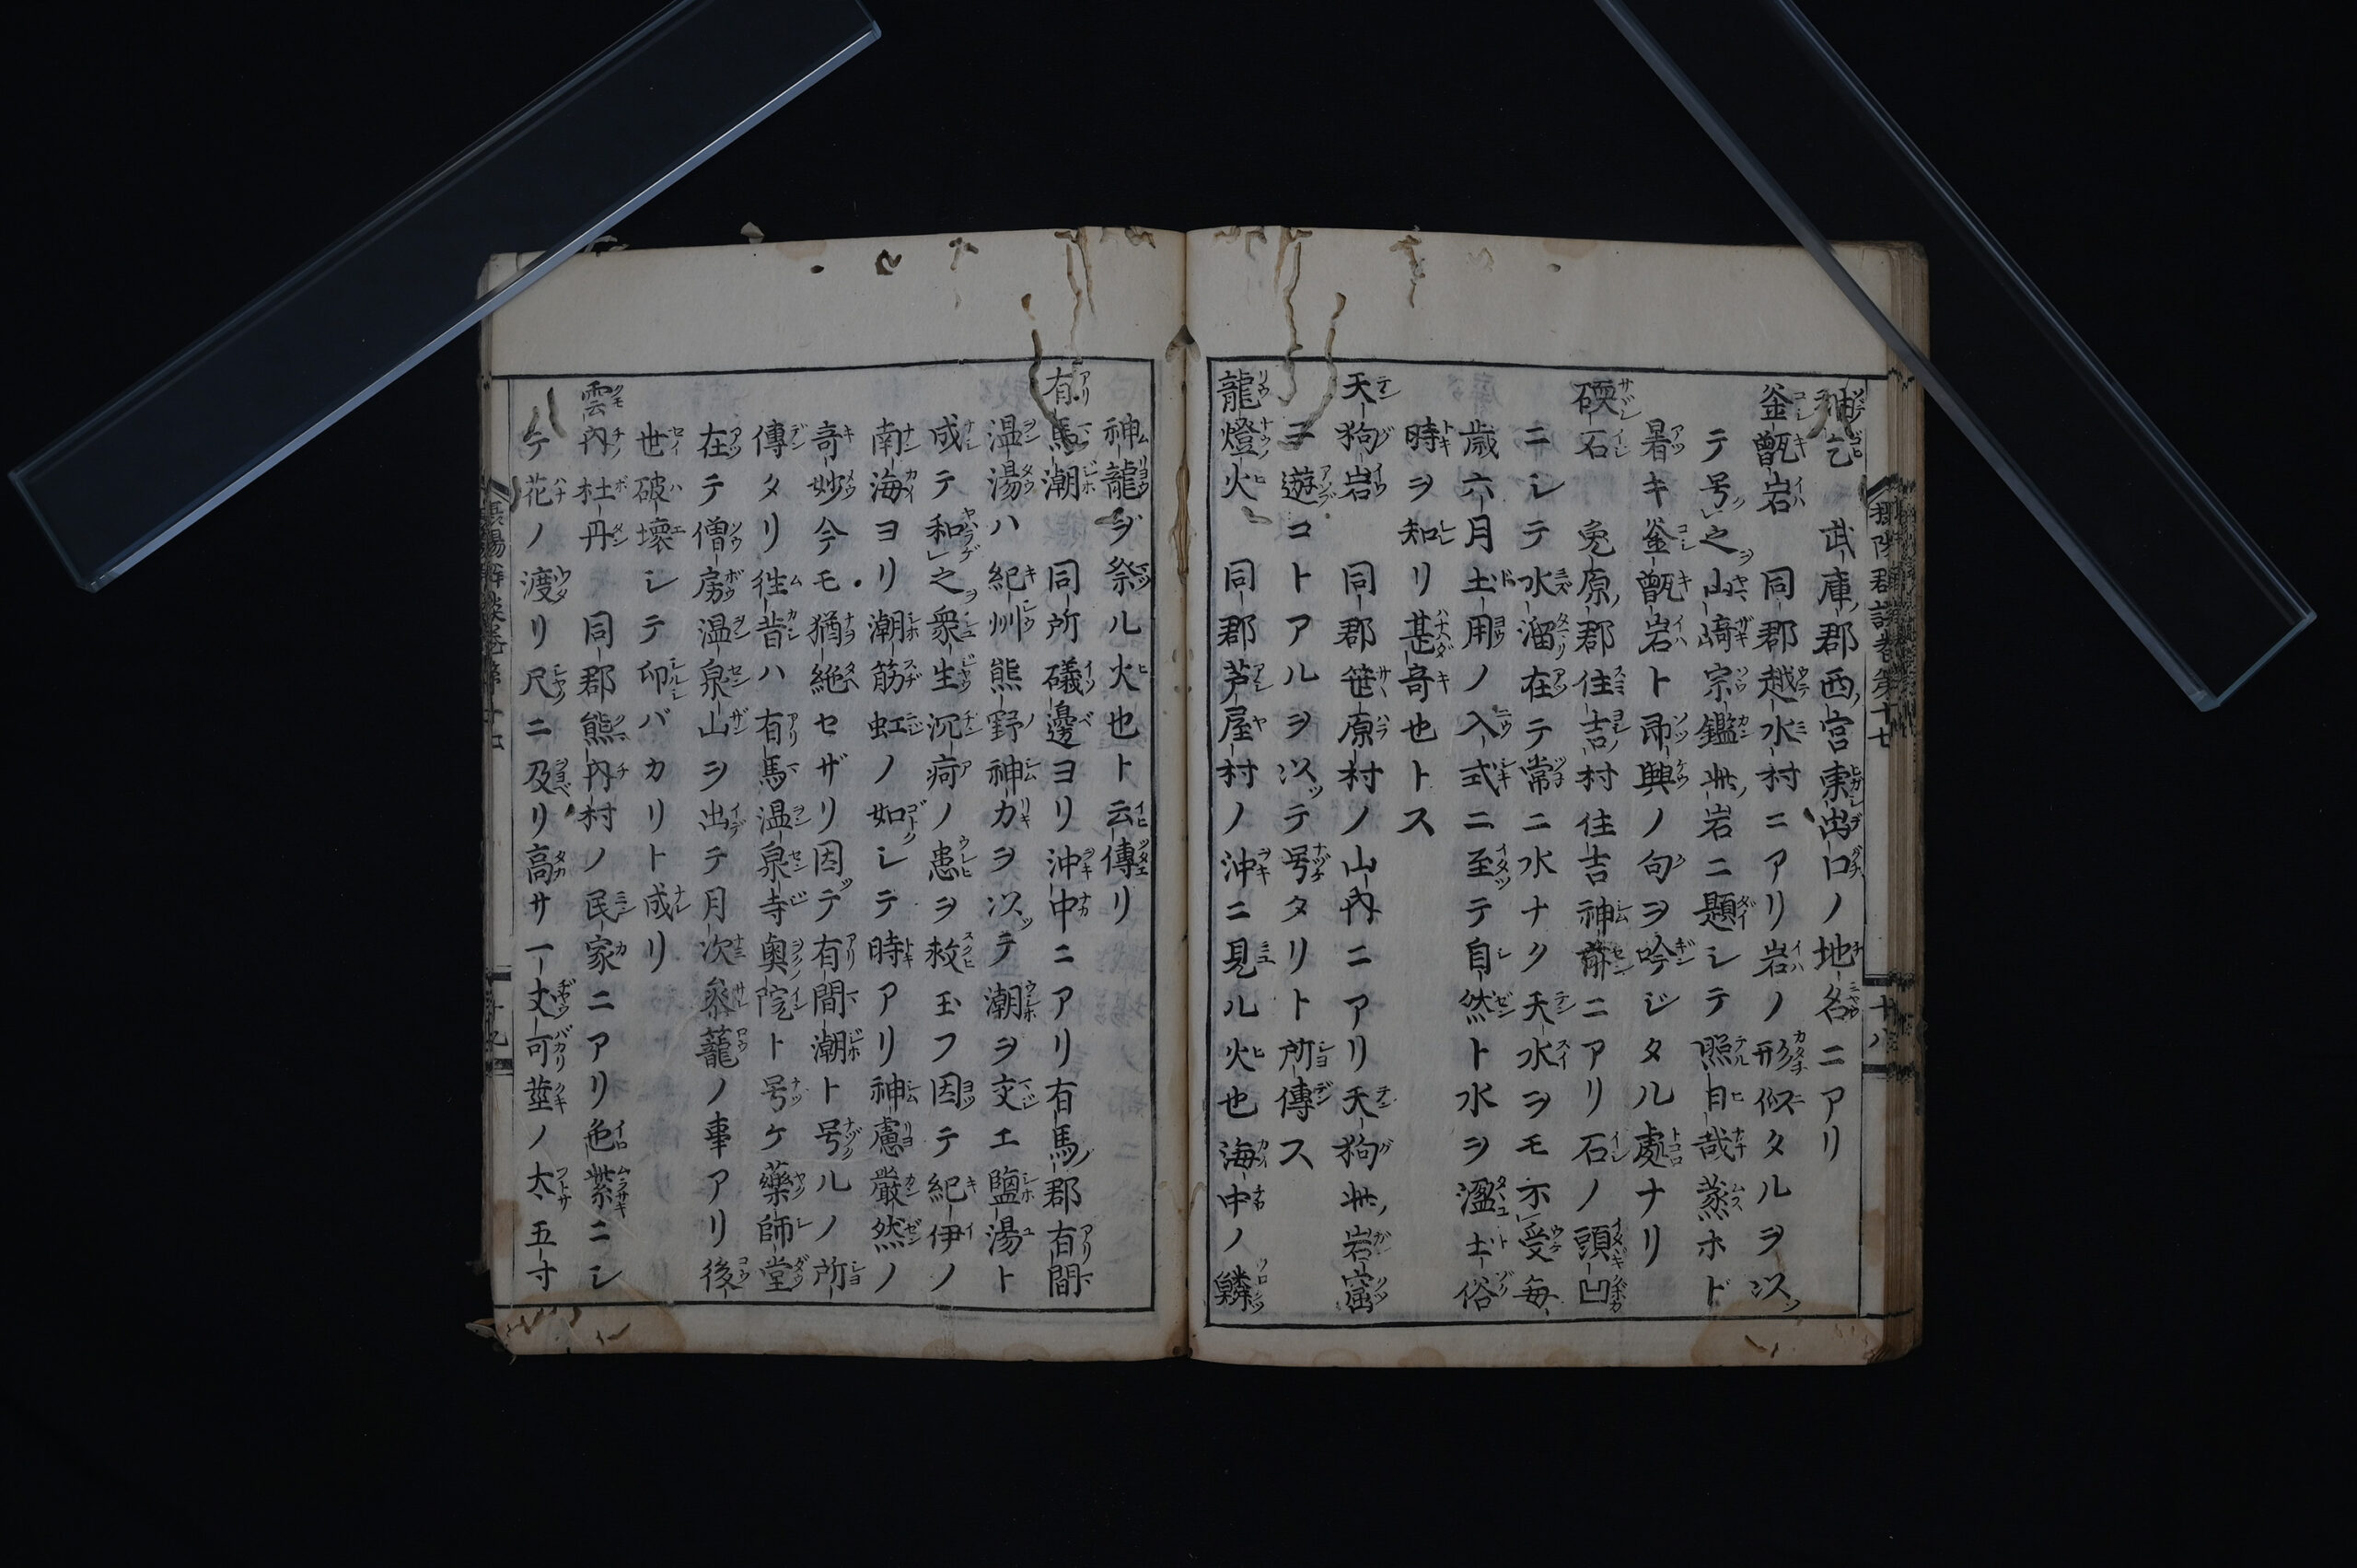 袖乞 武庫郡西宮東出口ノ地名ニアリ
釜甑岩 同郡越水村ニアリ岩ノ形似タルヲ以
テ号之山﨑宗鑑此岩ニ題シテ照日哉蒸ホド
暑キ釜甑岩ト即興ノ句ヲ吟ジタル處ナリ
礝石 兎原郡住吉村住吉神前ニアリ石ノ頭凹
ニシテ水溜在テ常ニ水ナク天水ヲモ不受毎
歳六月土用ノ入式ニ至テ自然ト水ヲ湓土俗
時ヲ知リ甚竒也トス
天狗岩 同郡笹原村ノ山内ニアリ天狗此岩窟
ニ遊コトアルヲ以テ号タリト所傳ス
龍燈火 同郡芦屋村ノ沖ニ見ル火也海中ノ鱗
神龍ヲ祭ル火也ト云傳リ
有馬潮 同所礒邊ヨリ沖中ニアリ有馬郡有間
温湯ハ紀州熊野神力ヲ以テ潮ヲ交エ鹽湯ト
成テ和之衆生沉疴ノ患ヲ救玉フ因テ紀伊ノ
南海ヨリ潮筋虹ノ如シテ時アリ神慮嚴然ノ
竒妙今モ猶絶セザリ因テ有間潮ト号ルノ所
傳タリ徃昔ハ有馬温泉寺奥院ト号ケ藥師堂
在テ僧房温泉山ヲ出テ月次參蘢ノ事アリ後
世破壞シテ印バカリト成リ
雲内牡丹 同郡熊内村ノ民家ニアリ色紫ニシ
テ花ノ渡リ尺ニ及リ高サ一丈可莖ノ太五寸
十八